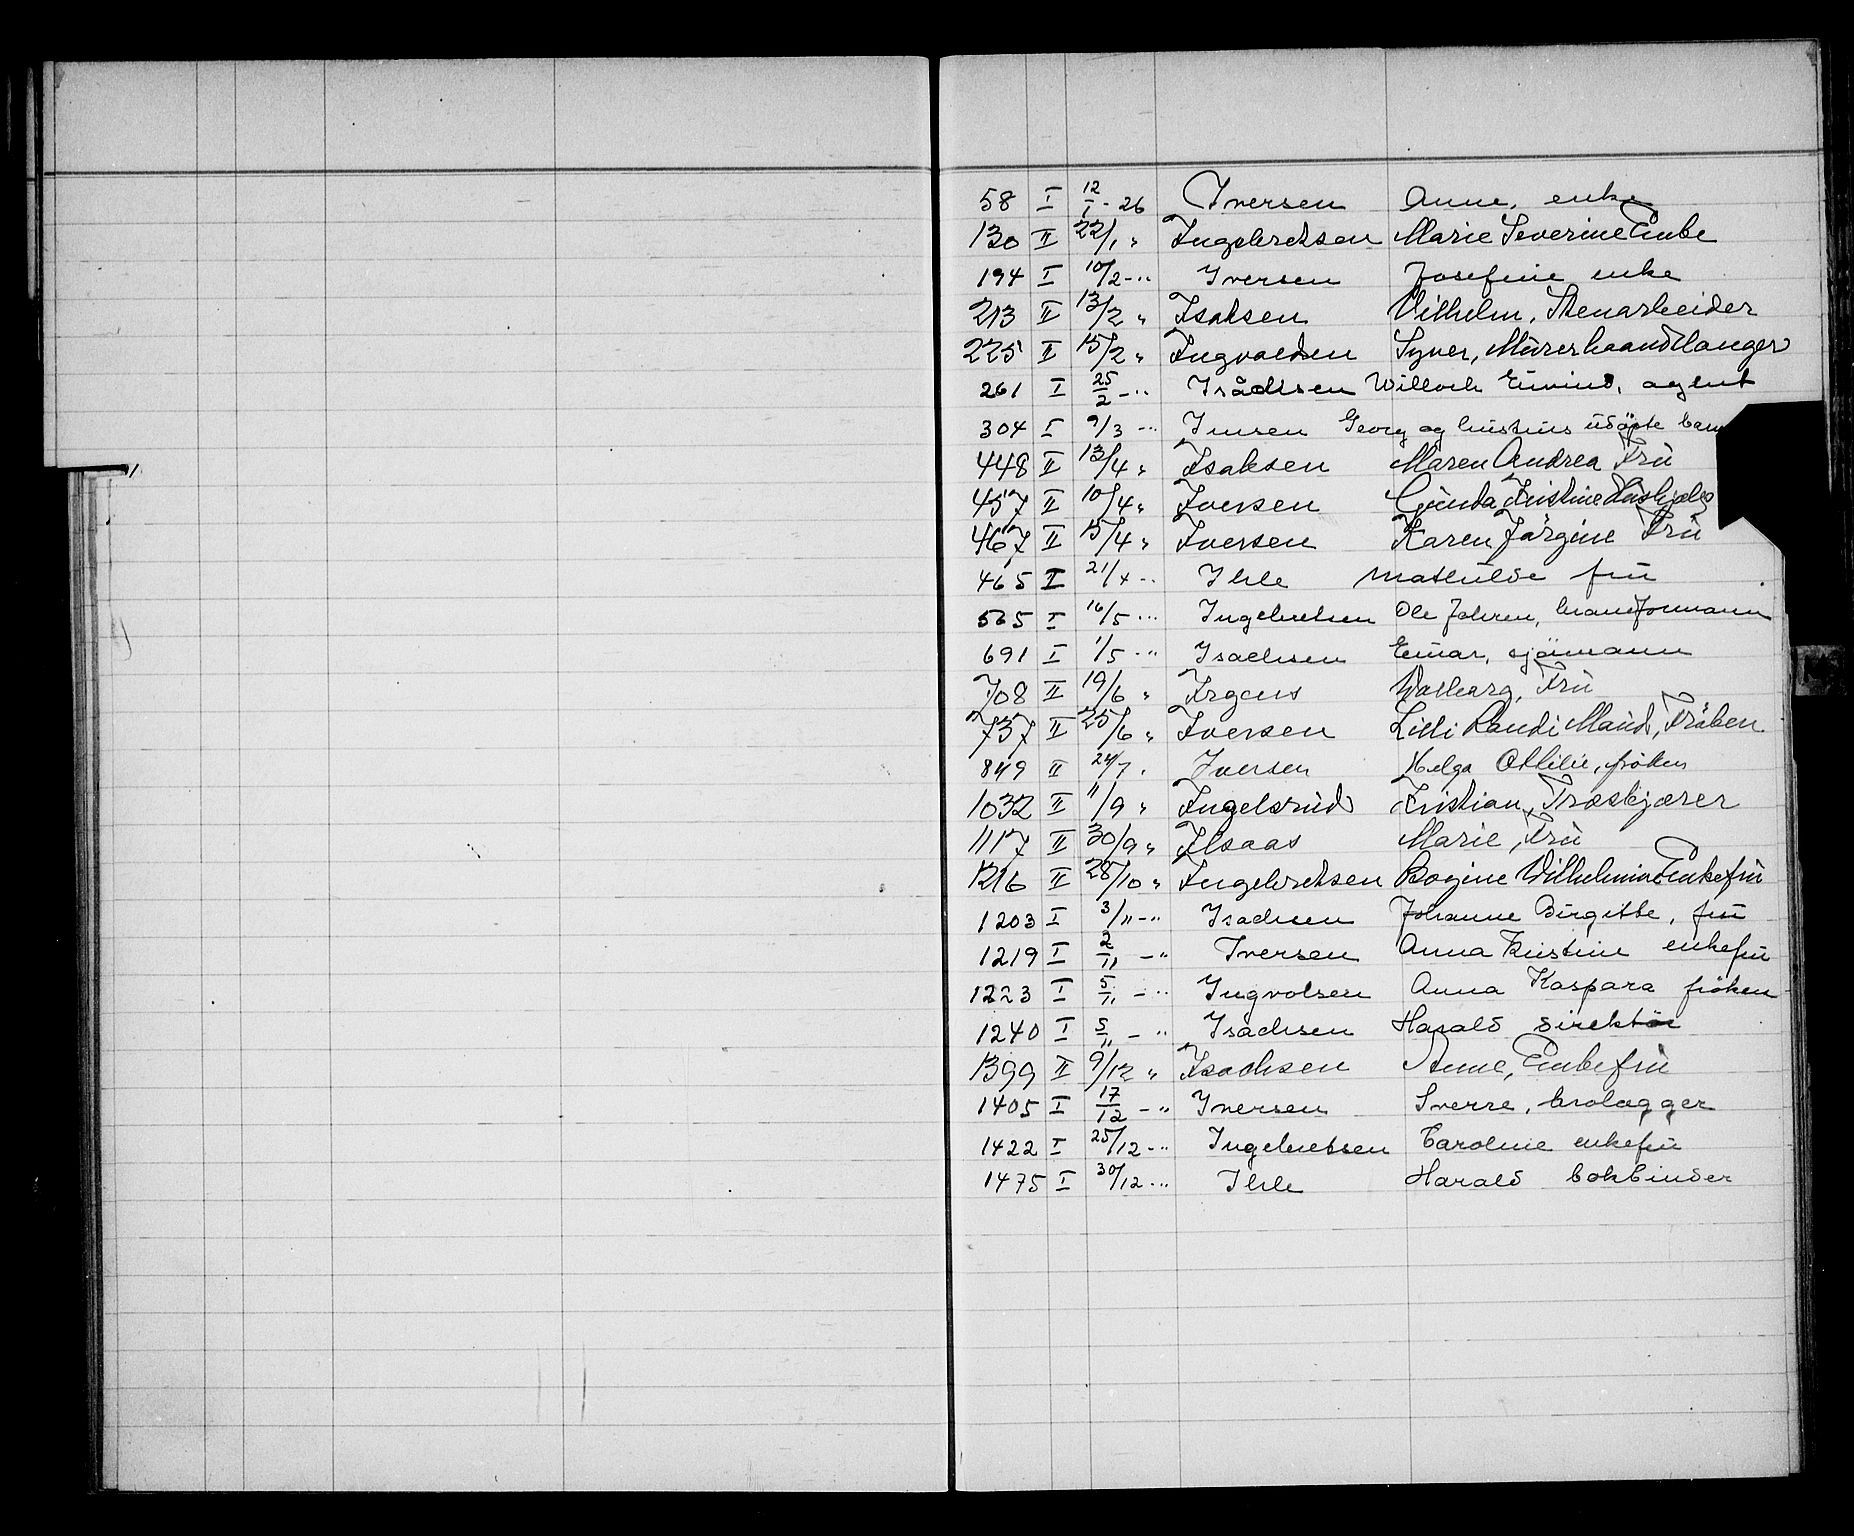 58 I 12/1 - 26 Iversen Anne, enke
130 II 22/1 " Ingebretsen Marie Severine Enke
194 I 10/2 - " Iversen Josefine enke
213 II 13/2 " Isaksen Vilhelm, Stenarbeider
225 II 15/2 " Ingvaldsen Syver, Mürerhaandlanger
261 I 25/2 - " Isachsen Willoch Eivind, agent
304 I 9/3 - " Iversen Georg og hustrus üdøpte barn
448 II 13/4 " Isaksen Maren Andrea Frü
457 II 10/4 " Iversen Günda Kristine
467 II 15/4 " Iversen Karen Jørgine Frü
465 I 21/4 - " Ihle Mathilde frü
565 I 16/5 - " Ingebretsen Ole Johren, formann
691 I 1/5 - " Isachsen Einar, sjømann
708 II 19/6 " Irgens Valborg, Frü
737 II 25/6 " Iversen Lilli Randi Maud, Frøken
849 II 24/7 " Iversen Helga Othilie, frøken
1032 II 11/9 " Ingelsrüd Kristian, Træskjærer
1117 II 30/9 " Ilsaas Marie, Frü
1216 II 28/10 " Ingebretsen Bogine Vilhelmine Enkefrü
1203 I 3/11 - " Isachsen Johanne Birgitte, frü
1219 I 2/11 - " Iversen Anna Kristine enkefrü
1223 I 5/11 - " Ingvolsen Anna Kaspara frøken
1240 I 5/11 - " Isachsen Harald direktør
1399 II 9/12 " Isachsen Anne, Enkefrü
1405 I 17/12 - " Iversen Sverre, brolægger
1422 I 25/12 - " Ingebretsen Caroline enkefrü
1475 I 30/12 - " Ihle Harald bokbinder